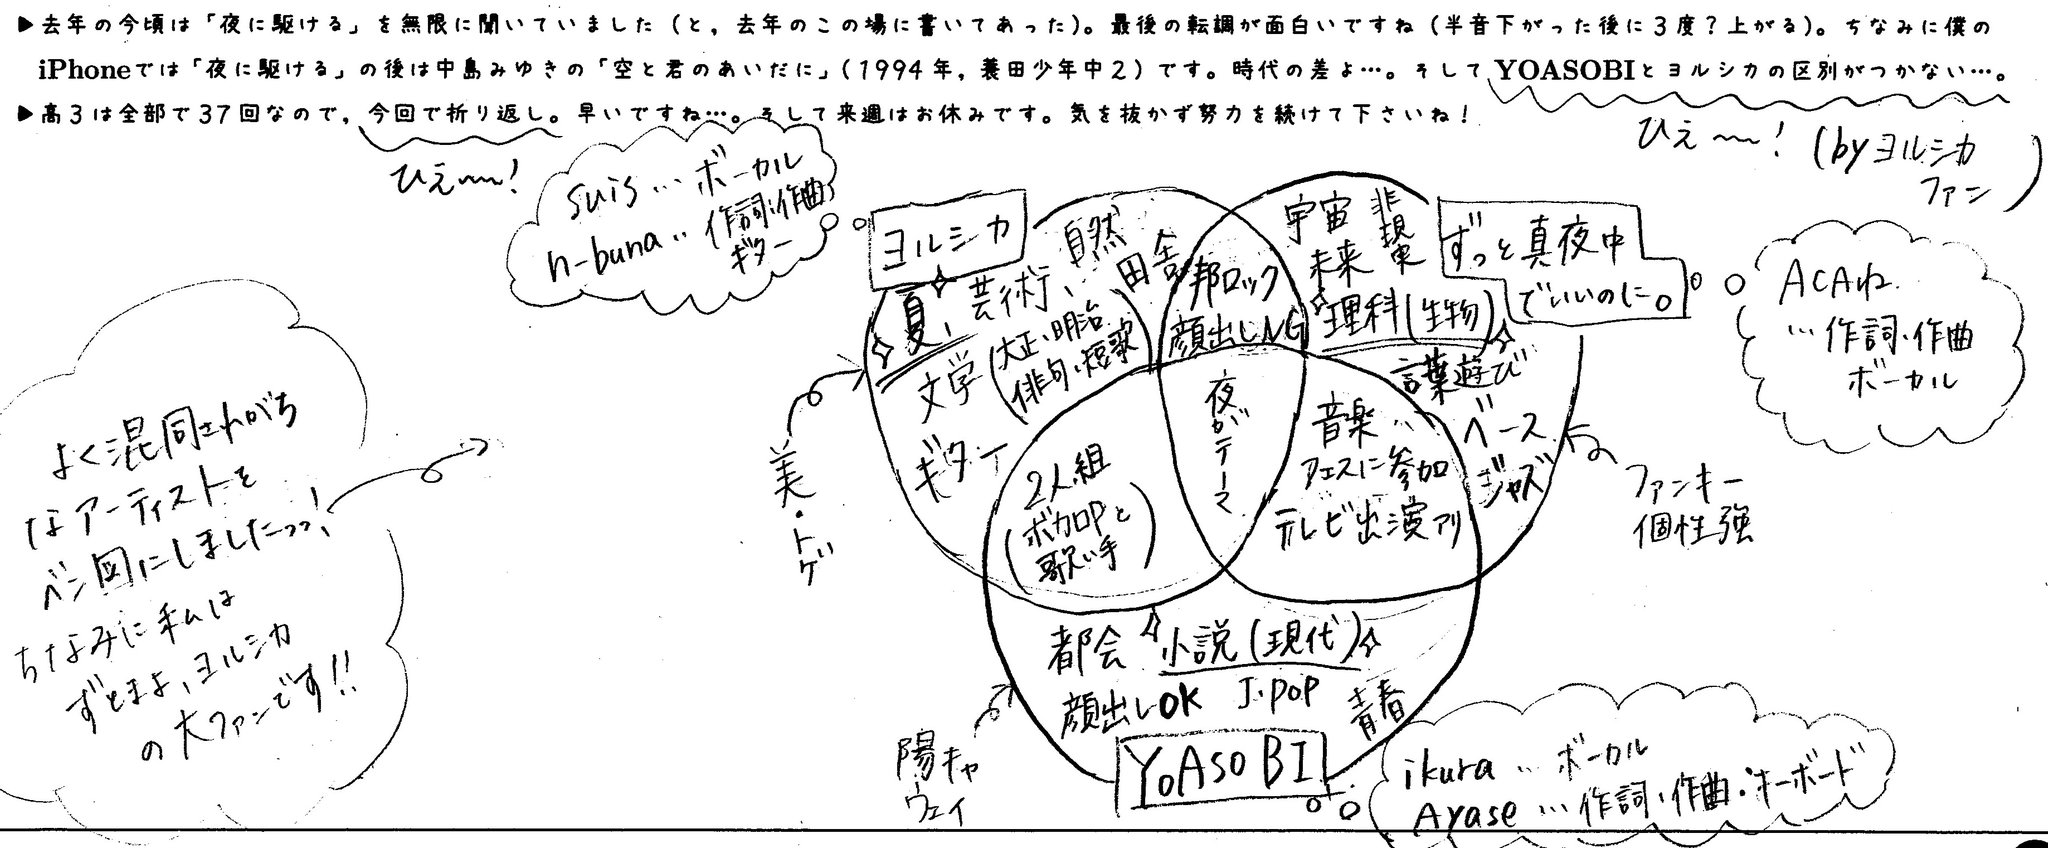 ▶去年の今頃は「夜に駆ける」を無限に聞いていました（と，去年のこの場に書いてあった）。最後の転調が面白いですね（半音下がった後に3度？上がる）。ちなみに僕の
iPhoneでは「夜に駆ける」の後は中島みゆきの「空と君のあいだに」（1994年，蓑田少年中2）です。時代の差よ…。そしてYOASOBIとヨルシカの区別がつかない…。
▶高3は全部で37回なので，今回で折り返し。早いですね…。そして来週はお休みです。気を抜かず努力を続けて下さいね！
ひえ〜〜！
ひえ〜〜！（byヨルシカ
ファン）
suis…ボーカル
n-buna…作詞・作曲
ギター
ヨルシカ
夏、芸術、自然
田舎
文学（大正・明治
俳句・短歌）
ギター
美・トゲ
邦ロック
顔出しNG
宇宙 非現実
未来
理科（生物）
言葉遊び
ベース
ジャズ
ずっと真夜中
でいいのに。
ACAね
…作詞・作曲
ボーカル
ファンキー
個性強
夜がテーマ
2人組
（ボカロPと
歌い手）
音楽
フェスに参加
テレビ出演アリ
都会 小説（現代）
顔出しOK J-POP 青春
YOASOBI
陽キャ
ウェイ
ikura…ボーカル
Ayase…作詞・作曲・キーボード
よく混同されがち
なアーティストを
ベン図にしましたっっ！
ちなみに私は
ずとまよ、ヨルシカ
の大ファンです!!